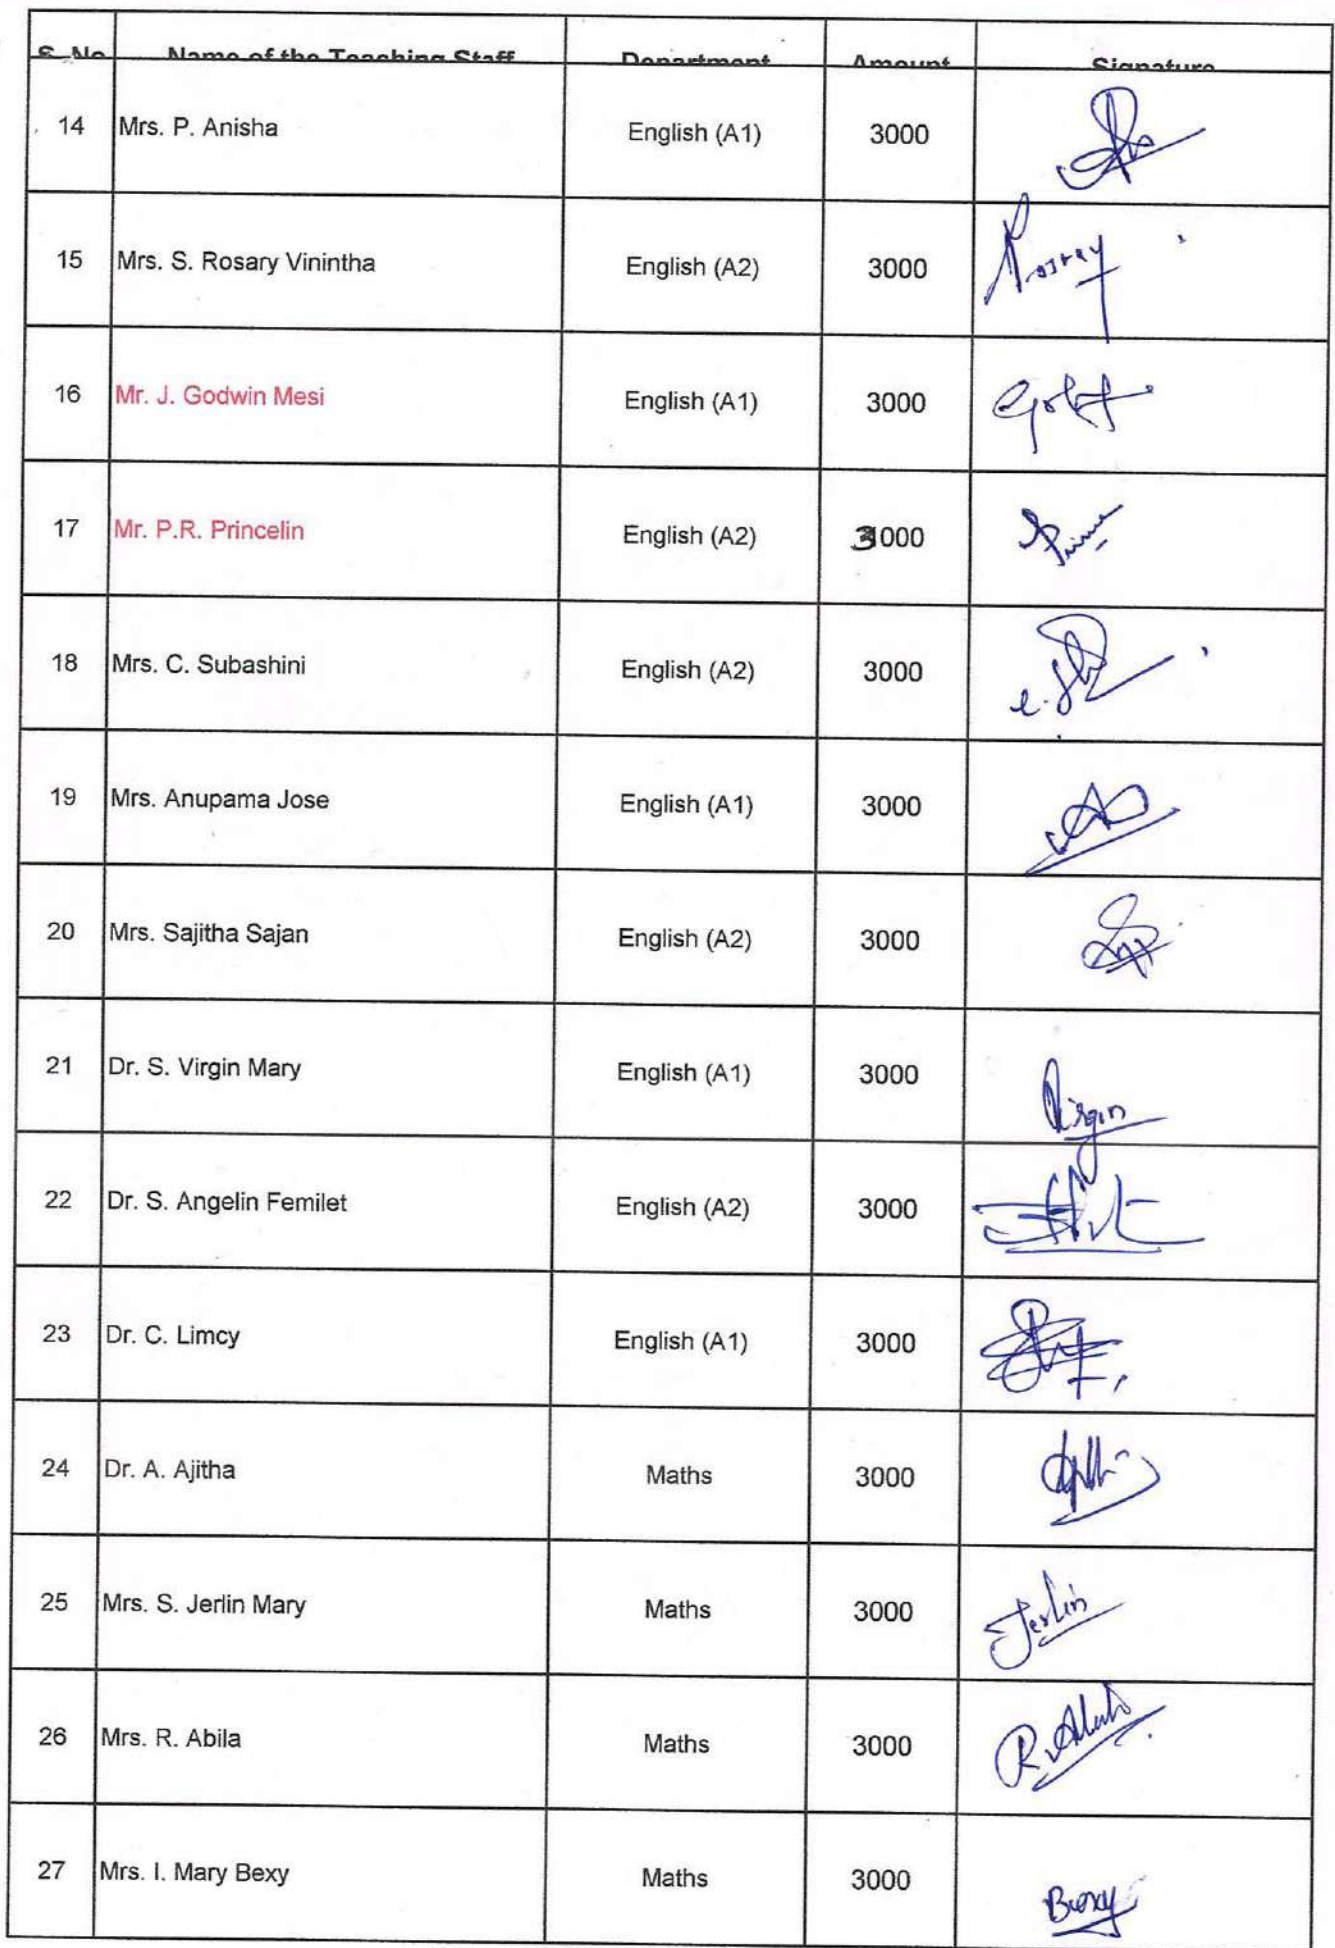 S. No Name of the Teaching Staff Department Amount Signature
14 Mrs. P. Anisha English (A1) 3000
15 Mrs. S. Rosary Vinintha English (A2) 3000 Rosary
16 Mr. J. Godwin Mesi English (A1) 3000
17 Mr. P.R. Princelin English (A2) 3000
18 Mrs. C. Subashini English (A2) 3000
19 Mrs. Anupama Jose English (A1) 3000
20 Mrs. Sajitha Sajan English (A2) 3000
21 Dr. S. Virgin Mary English (A1) 3000 Virgin
22 Dr. S. Angelin Femilet English (A2) 3000
23 Dr. C. Limcy English (A1) 3000
24 Dr. A. Ajitha Maths 3000
25 Mrs. S. Jerlin Mary Maths 3000 Jerlin
26 Mrs. R. Abila Maths 3000
27 Mrs. I. Mary Bexy Maths 3000 Bexy